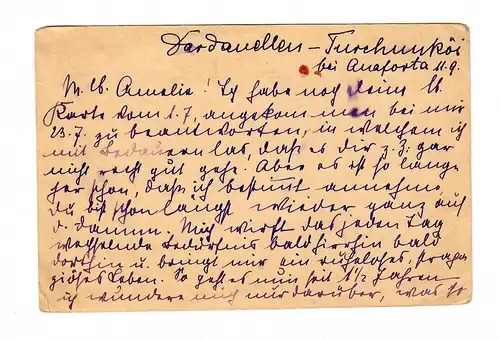 Dardanellen – Turschunköi
bei Anaforta 11.9.
M. lb. Amelie! Ich habe noch deine lb.
Karte vom 1.7, angekommen bei mir
23.7. zu beantworten, in welchem ich
mit Bedauern las, daß es dir z. Z. gar
nicht recht gut gehe. Aber es ist so lange
her schon, daß ich bestimmt annehme,
du bist schon längst wieder ganz auf
d. damm. Mich wirft das jeden Tag
wechselnde Bedürfnis bald hierhin bald
dorthin u. bringt mir ein ruheloses, strapa
ziöses Leben. So geht es nun seit 1½ Jahren
ich wundere mich nur darüber, was so